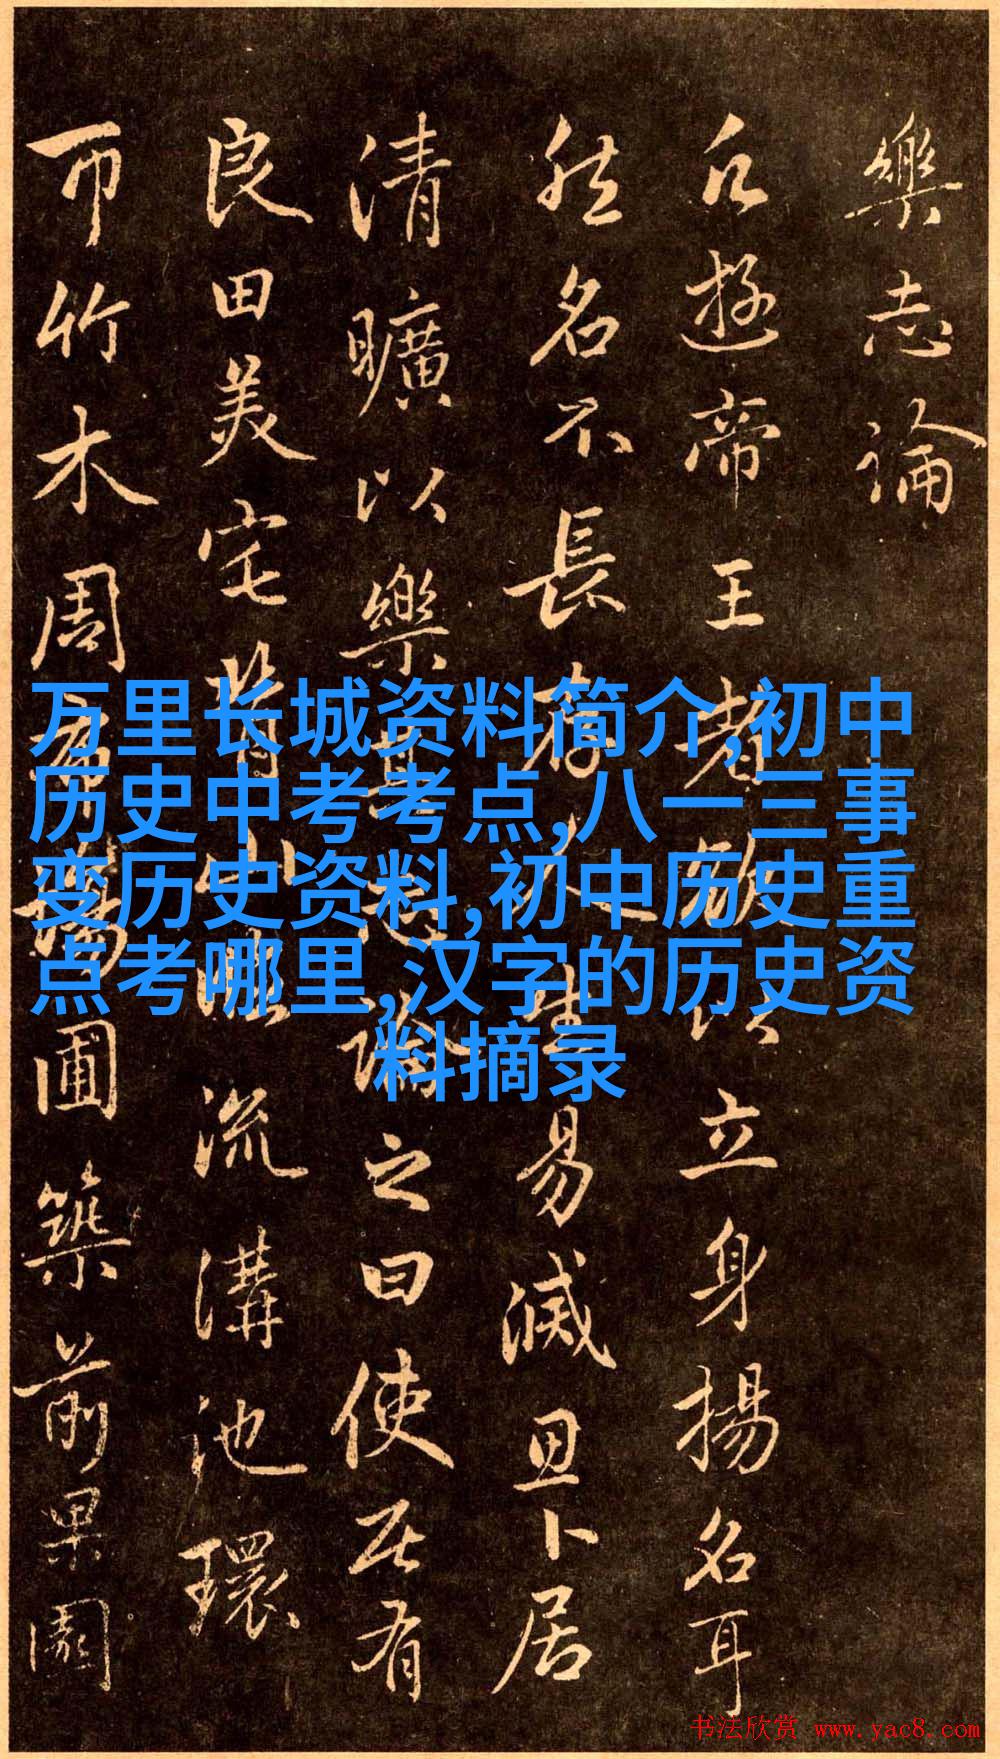 樂志論
凡遊帝王者欲以立身揚名耳
然名不長存人生易滅思卜居
清曠以樂其志論之曰使居有
良田美宅背山臨流溝池環
帀竹木周布場圃築前果園
万里长城资料简介,初中
历史中考考点,八一三事
变历史资料,初中历史重
点考哪里,汉字的历史资
料摘录
书法欣赏 www.yac8.com